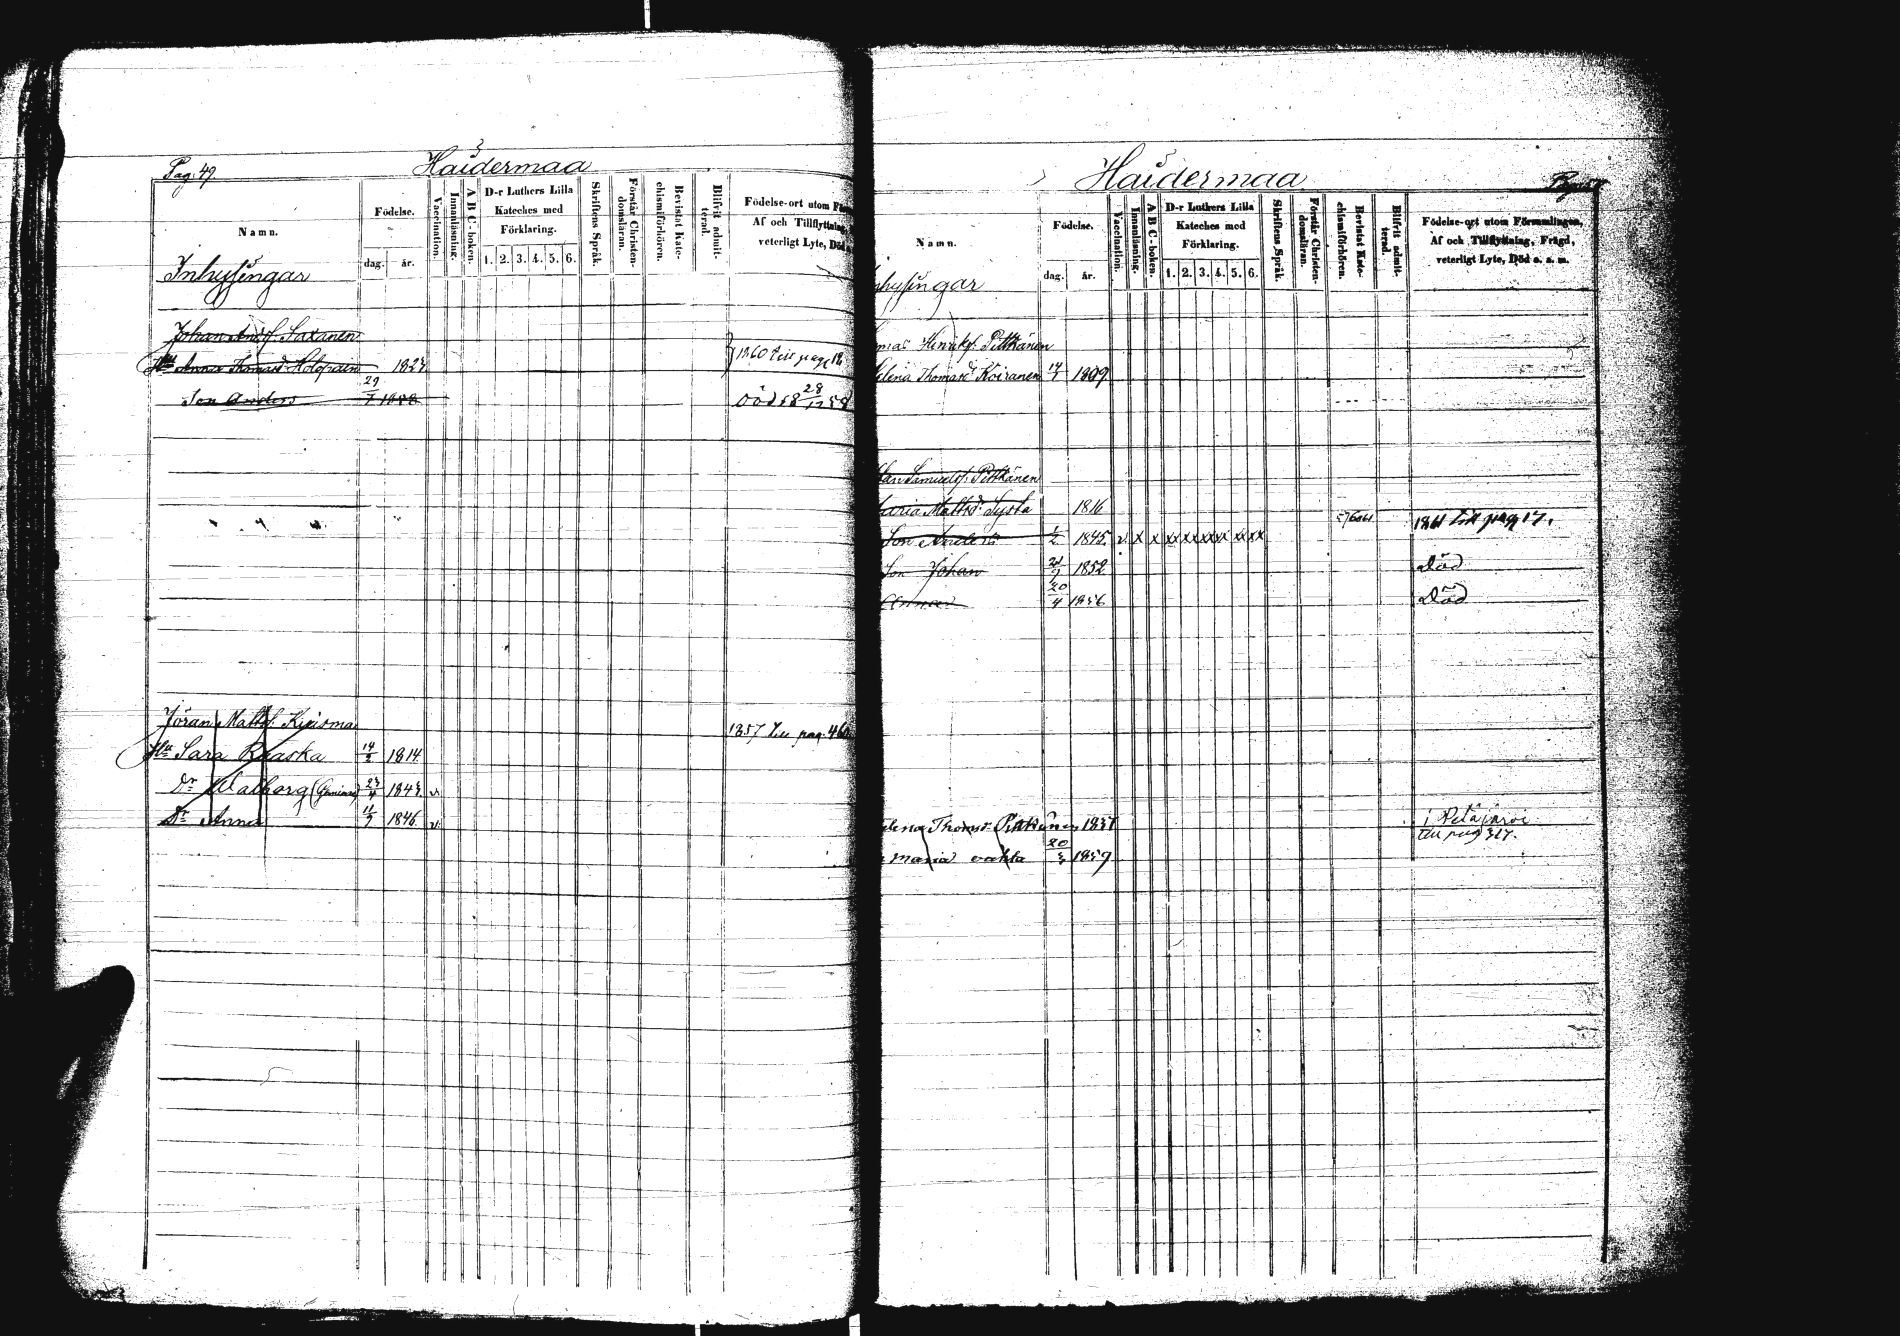 Pag: 49.
Haidermaa
Namn.
Födelse.
dag.
år.
Vaccination.
Innanläsning.
A B C-boken.
D-r Luthers Lilla
Kateches med
Förklaring.
1. 2. 3. 4. 5. 6.
Skriftens Språk.
Förstår Christen-
domsläran.
Bevistat Kate-
chismiförhören.
Blifvit admit-
terad.
Födelse-ort utom
Af och Tillflyttning,
veterligt Lyte, Död
Inhysingar
Johan Andsf. Saxanen
Hu Anna Thomasd. Holopain 1823 1860 till page
Son Anders 29/7 1858 Död 28/12 58
Jöran Mattsf. Kirisma 1857 till pag. 46
Hu Sara Raaska 14/2 1814
Dr Walborg 23/4 1843 v
Dr Anna 11/7 1846 v
Haidermaa
Namn.
Födelse.
dag.
år.
Vaccination.
Innanläsning.
A B C-boken.
D-r Luthers Lilla
Kateches med
Förklaring.
1. 2. 3. 4. 5. 6.
Skriftens Språk.
Förstår Christen-
domsläran.
Bevistat Kate-
chismiförhören.
Blifvit admit-
terad.
Födelse-ort utom Församlingen,
Af och Tillflyttning, Frägd,
veterligt Lyte, Död o. s. m.
hysingar
mas Henriksf. Pitkänen
elena Thomasd. Koiranen 14/7 1809
Samuelsf. Pitkänen
aria Mattsd. Systa 1816
Son Anders 1/2 1845 v x x xx xx xx xx xx xx 1861 till pag 17.
Son Johan 1852 Död
Anna 20/4 1856 Död
elena Thomsd Pitkänen 1831 i Petäjärvi
till pag 317.
Maria vakta 20/3 1857